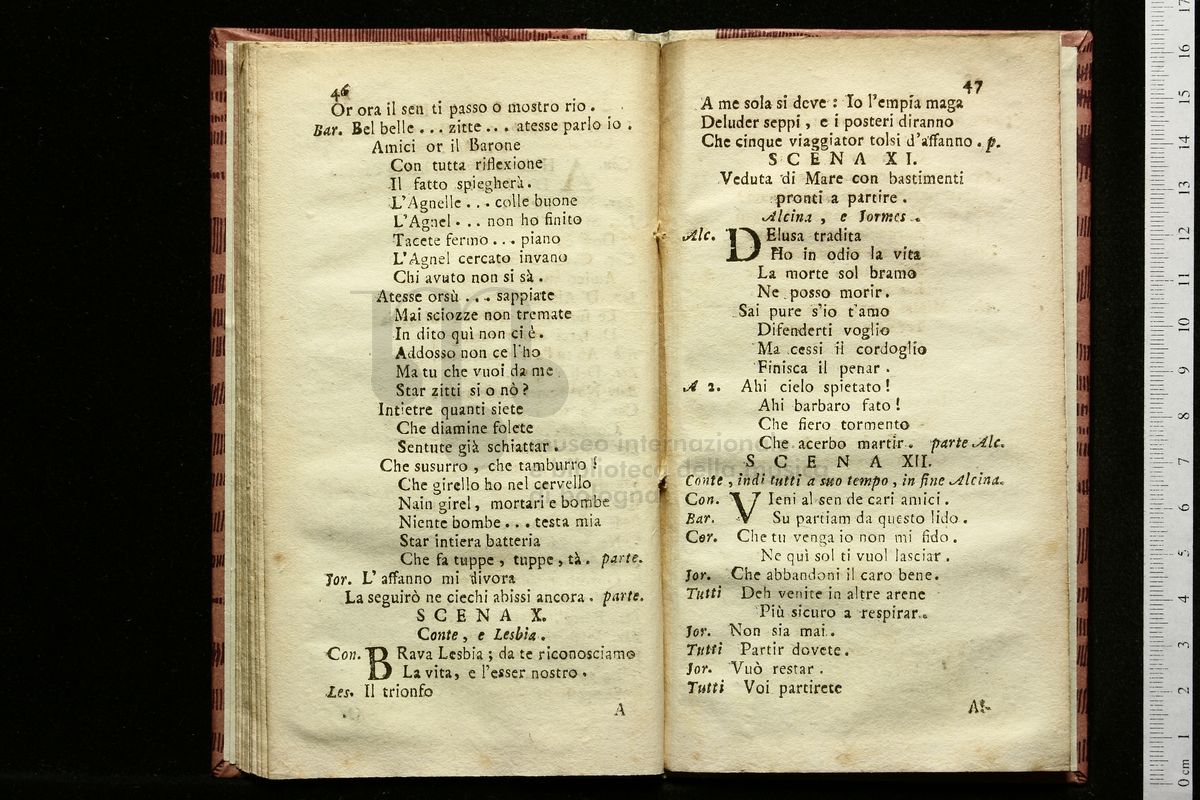 46
Or ora il sen ti passo o mostro rio.
Bar. Bel belle ... zitte ... atesse parlo io.
Amici or il Barone
Con tutta riflexione
Il fatto spiegherà.
L'Agnelle ... colle buone
L'Agnel ... non ho finito
Tacete fermo ... piano
L'Agnel cercato invano
Chi avuto non si sà.
Atesse orsù ... sappiate
Mai sciozze non tremate
In dito quì non ci è.
Addosso non ce l'ho
Ma tu che vuoi da me
Star zitti si o nò?
Intietre quanti siete
Che diamine folete
Sentute già schiattar.
Che susurro, che tamburro!
Che girello ho nel cervello
Nain girel, mortari e bombe
Niente bombe ... testa mia
Star intiera batteria
Che fa tuppe, tuppe, tà. parte.
Jor. L'affanno mi divora
La seguirò ne ciechi abissi ancora. parte.
SCENA X.
Conte, e Lesbia.
Con. BRava Lesbia; da te riconosciamo
La vita, e l'esser nostro.
Les. Il trionfo
A
47
A me sola si deve: Io l'empia maga
Deluder seppi, e i posteri diranno
Che cinque viaggiator tolsi d'affanno. p.
SCENA XI.
Veduta di Mare con bastimenti
pronti a partire.
Alcina, e Jormes.
Alc. DElusa tradita
Ho in odio la vita
La morte sol bramo
Ne posso morir.
Sai pure s'io t'amo
Difenderti voglio
Ma cessi il cordoglio
Finisca il penar.
A 2. Ahi cielo spietato!
Ahi barbaro fato!
Che fiero tormento
Che acerbo martir. parte Alc.
SCENA XII.
Conte, indi tutti a suo tempo, in fine Alcina.
Con. VIeni al sen de cari amici.
Bar. Su partiam da questo lido.
Cor. Che tu venga io non mi fido.
Ne quì sol ti vuol lasciar.
Jor. Che abbandoni il caro bene.
Tutti Deh venite in altre arene
Più sicuro a respirar.
Jor. Non sia mai.
Tutti Partir dovete.
Jor. Vuò restar.
Tutti Voi partirete
museo internazionale
e biblioteca della musica
di bologna
0 cm 1 2 3 4 5 6 7 8 9 10 11 12 13 14 15 16 17